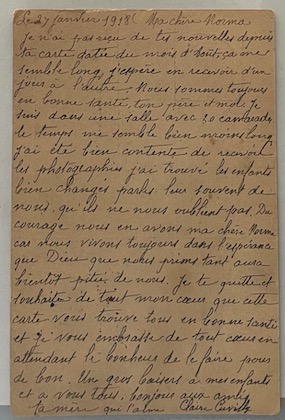 Le 27 janvier 1918 Ma chère Norma
Je n'ai pas reçu de tes nouvelles depuis
ta carte datée du mois d'Aout, ça me
semble long, j'espère en recevoir d'un
jour à l'autre. Nous sommes toujours
en bonne santé, ton père et moi. Je
suis dans une salle avec 20 camarades
le temps me semble bien moins long
j'ai été bien contente de recevoir
les photographies j'ai trouvé les enfants
bien changés parles leur souvent de
nous, qu'ils ne nous oublient pas. Du
courage nous en avons ma chère Norma
car nous vivons toujours dans l'espérance
que Dieu que nous prions tant aura
bientot pitié de nous. Je te quitte et
souhaite de tout mon cœur que cette
carte vous trouve tous en bonne santé
et je vous embrasse de tout cœur en
attendant le bonheur de le faire pour
de bon. Un gros baisers à mes enfants
et à vous tous, bonjour aux amis
ta mère qui t'aime Claire